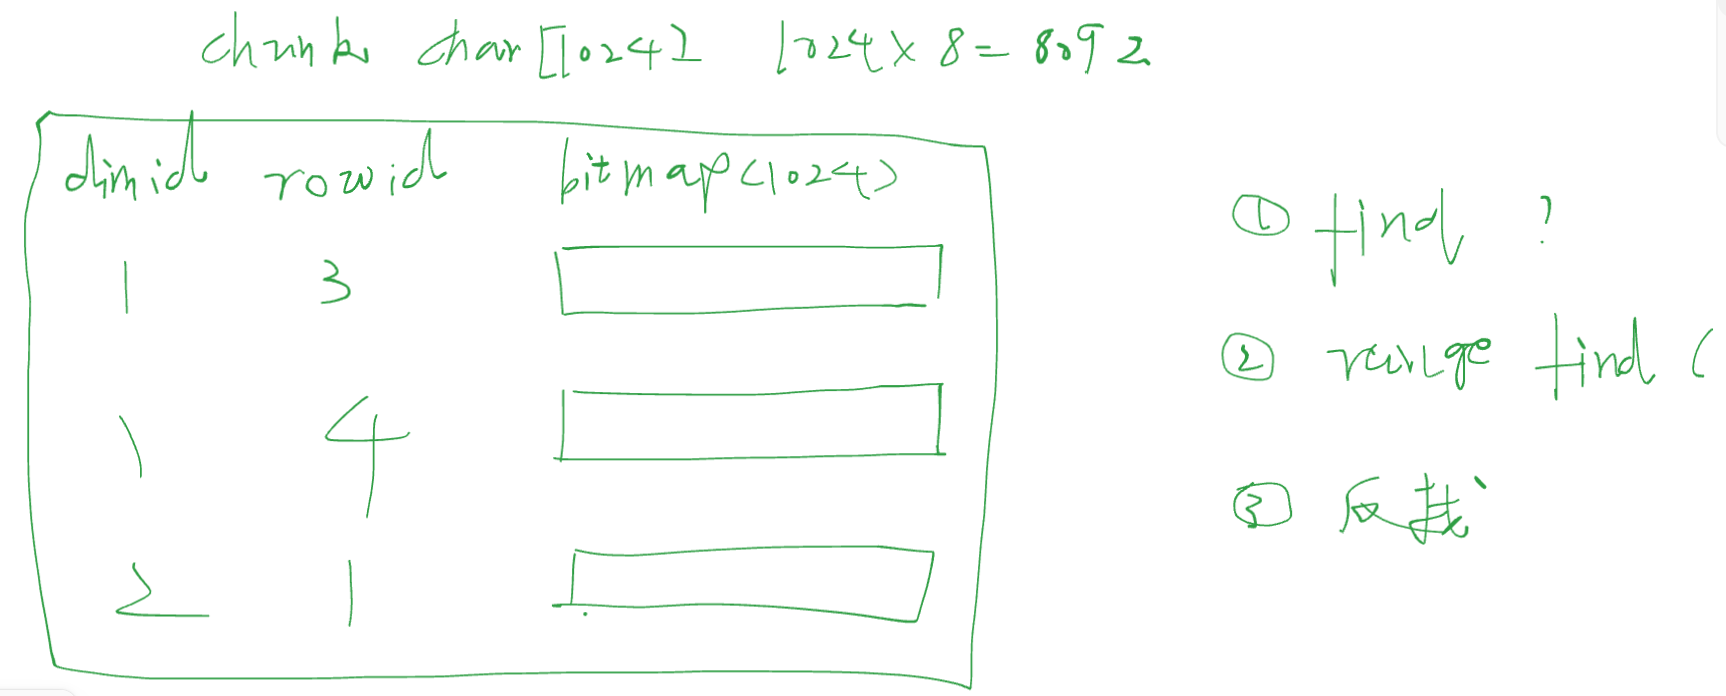 chunk char[1024] 1024×8=8092
dimid rowid bitmap<1024>
1 3
1 4
2 1
① find ?
② range find (
③ 反